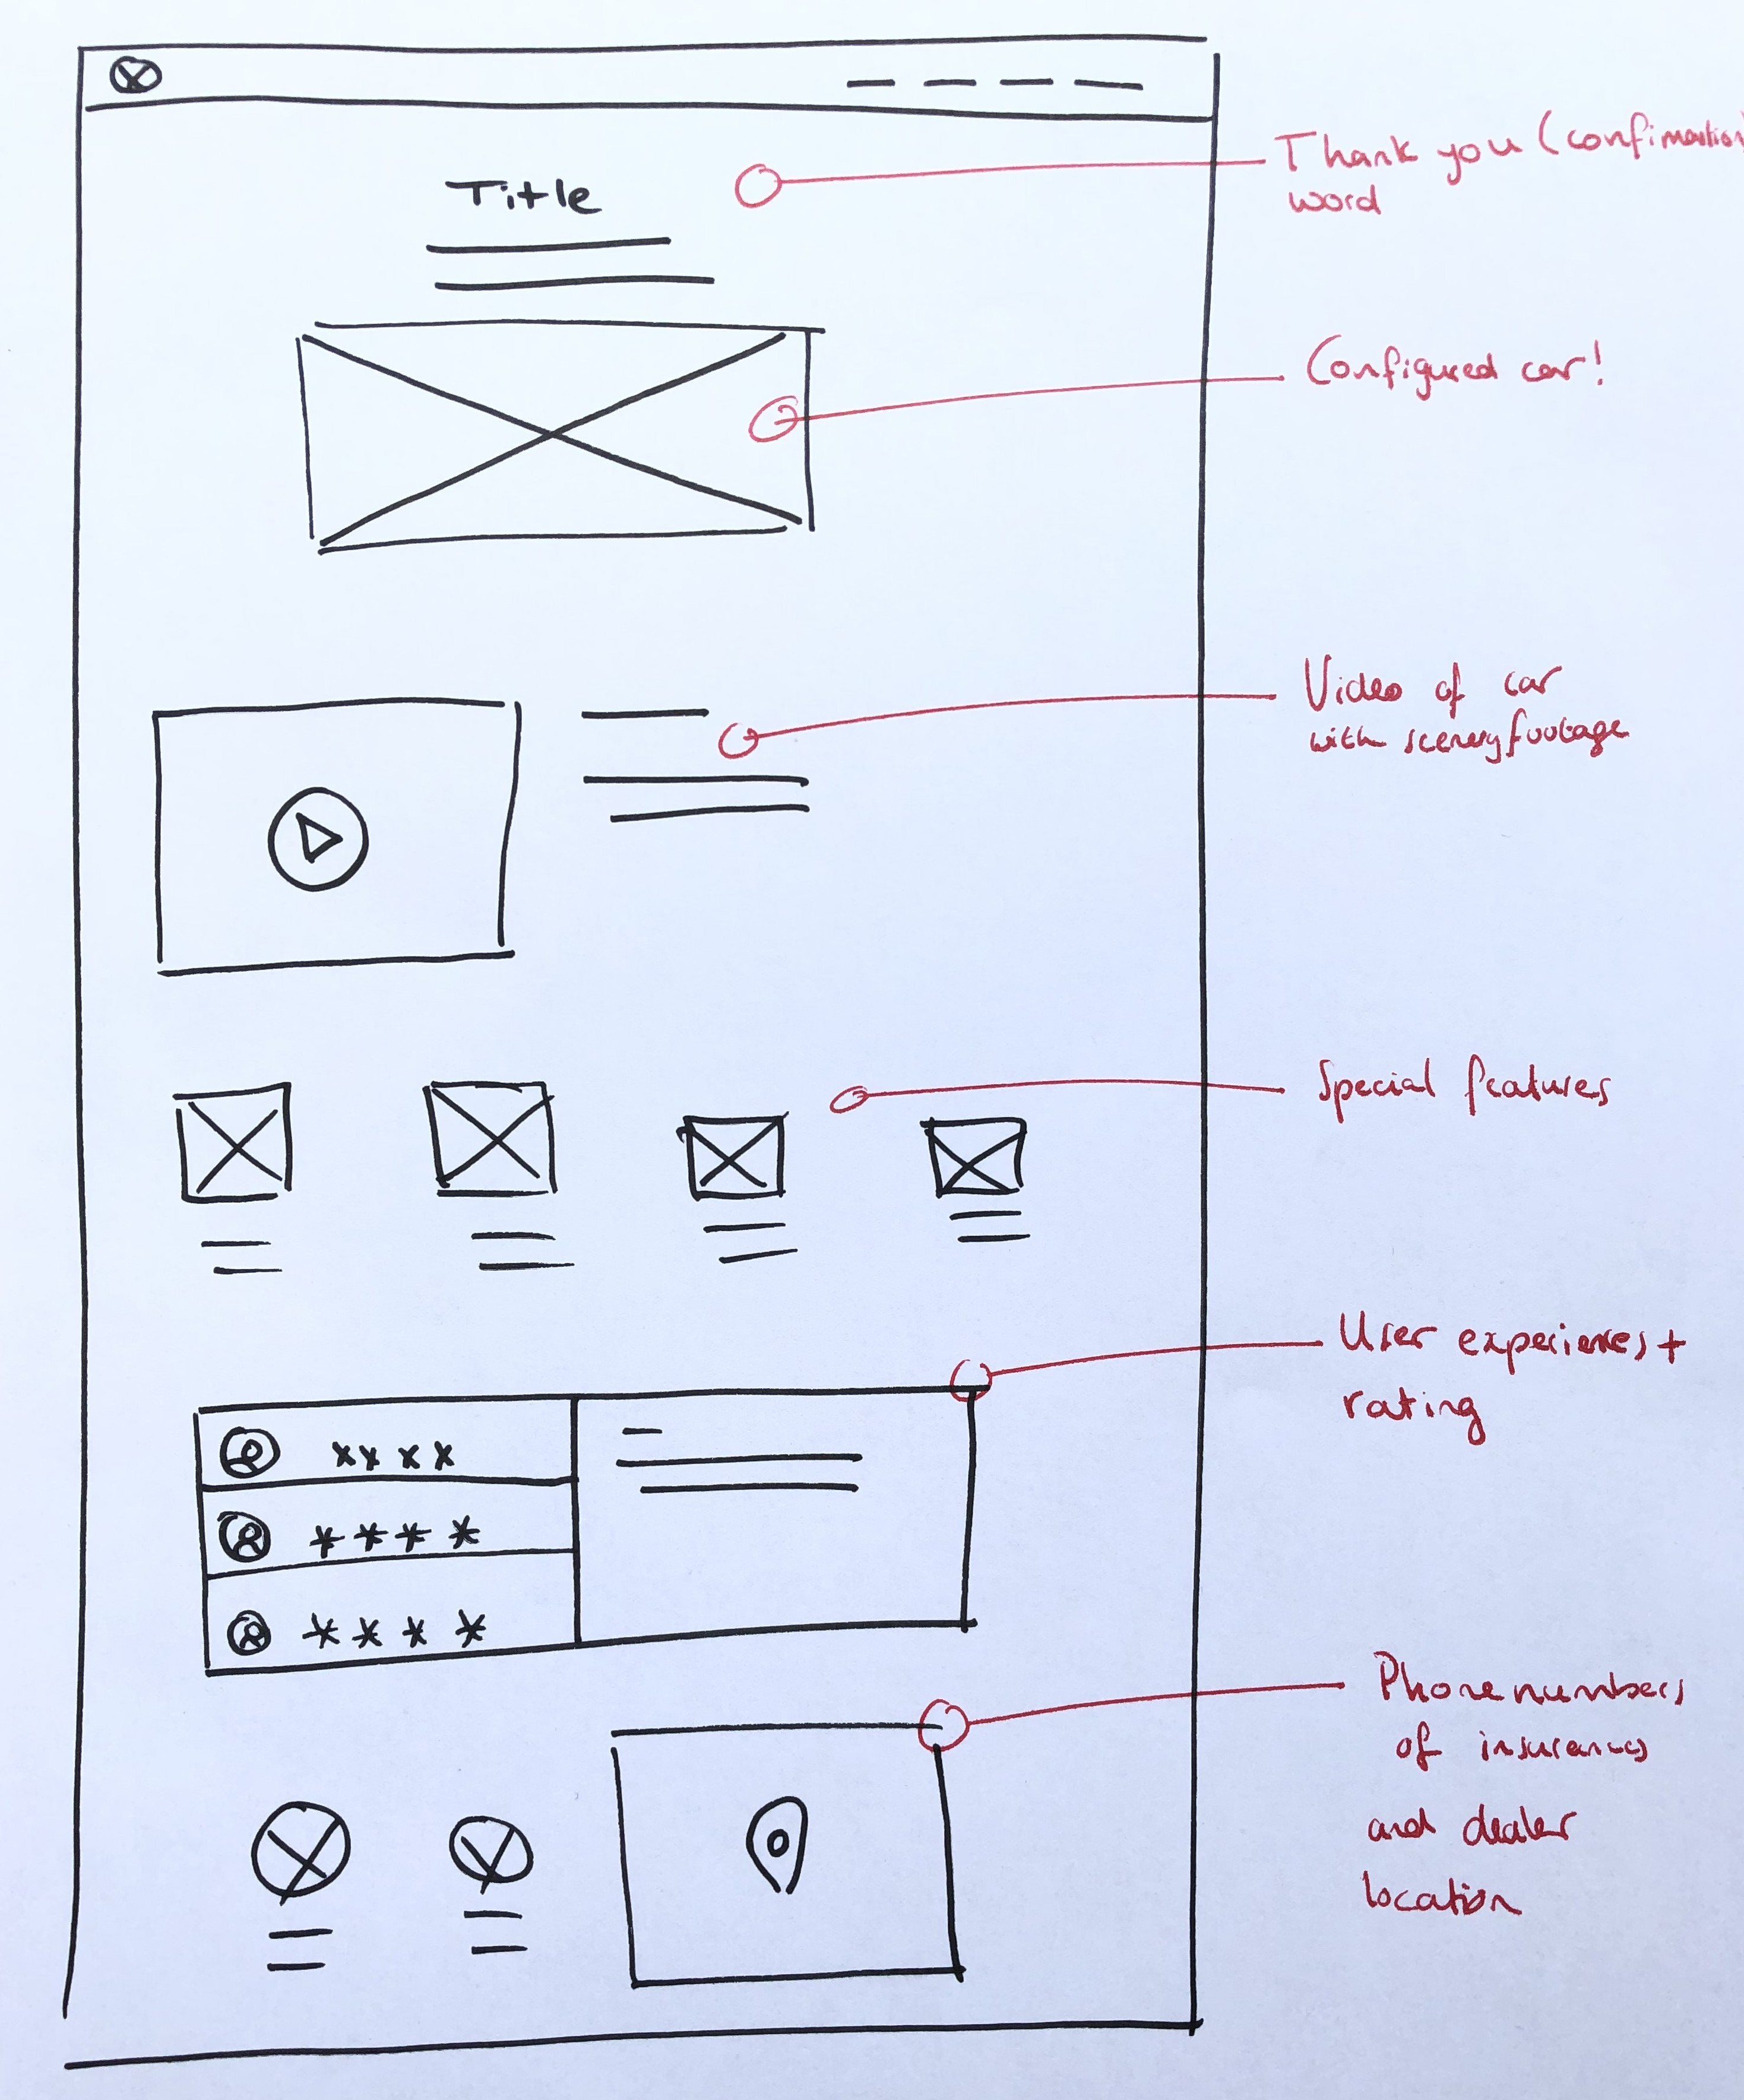 Title
Thank you (confimation)
word
Configured car!
Video of car
with scenery footage
Special features
User experiences +
rating
Phonenumbers
of insurances
and dealer
location